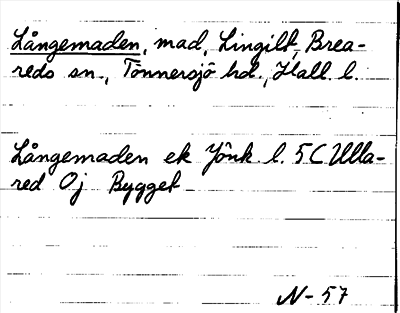 Långemaden, mad, Lingilt, Brea-
reds sn., Tönnersjö hd., Hall. l.
Långemaden ek Jönk l. 5C Ulla-
red Oj Bygget
N-57